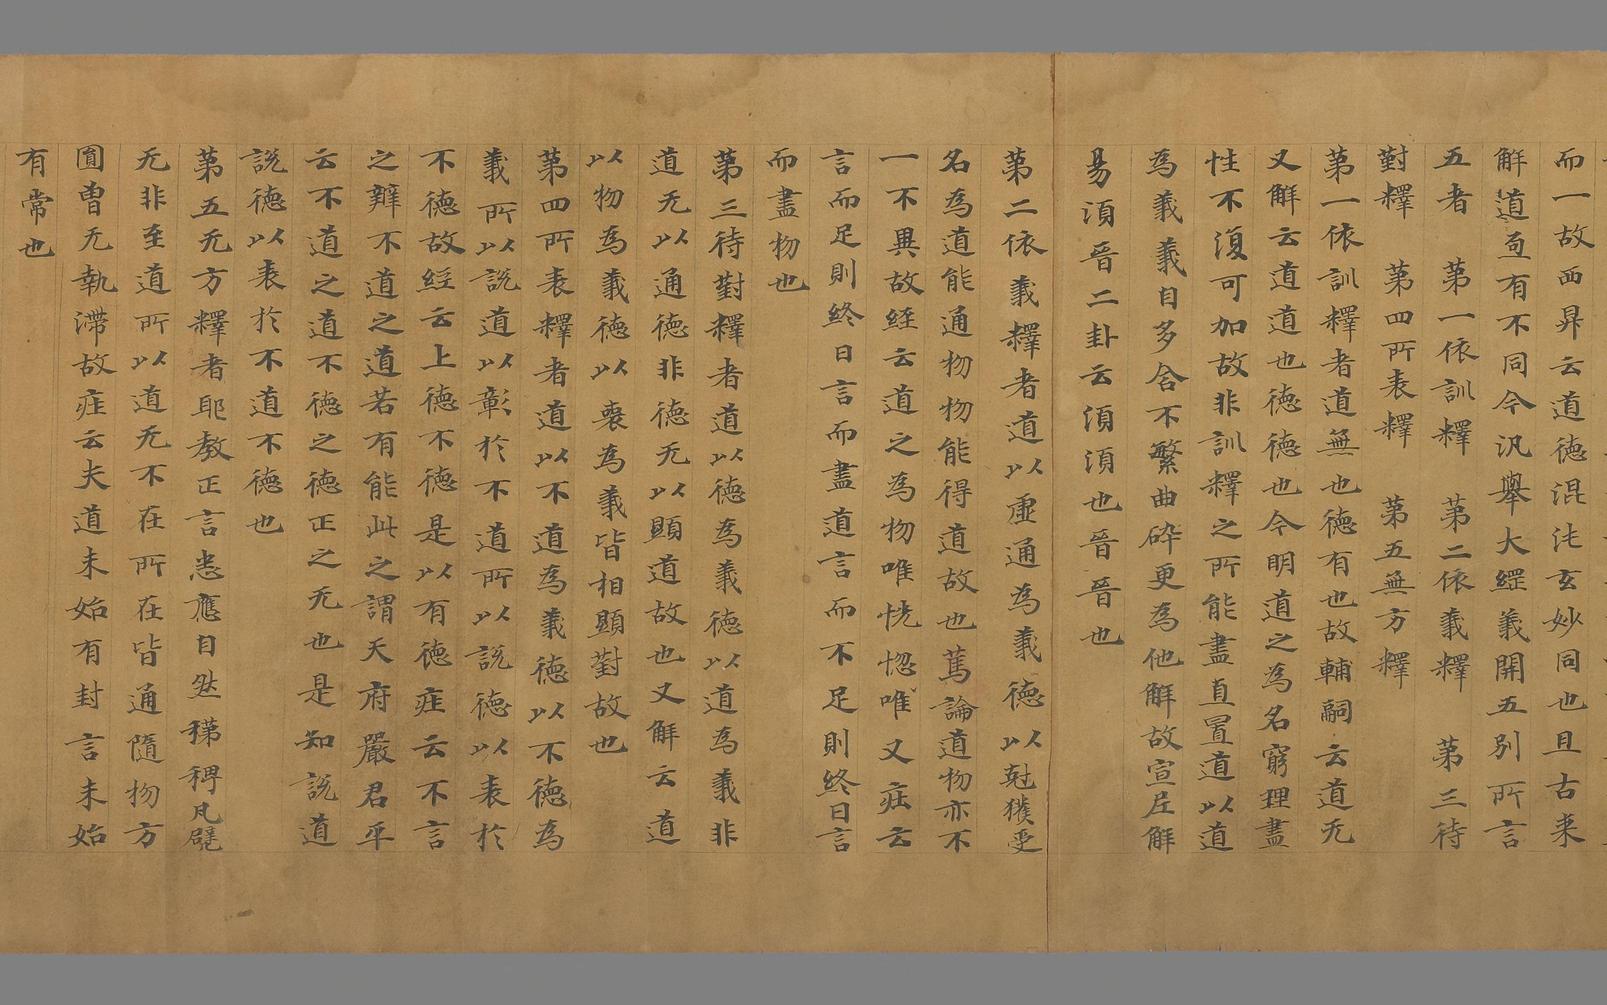 而一故西昇云道德混沌玄妙同也且古来
解道亙有不同今汎舉大經義開五別所言
五者　第一依訓釋　第二依義釋　第三待
對釋　第四所表釋　第五無方釋
第一依訓釋者道無也德有也故輔嗣云道无
又解云道道也德德也今明道之為名窮理盡
性不復可加故非訓釋之所能盡直置道以道
為義義目多含不繁曲碎更為他解故宣尼解
易湏晉二卦云湏湏也晉晉也
第二依義釋者道以虛通為義德以尅獲受
名為道能通物物能得道故也萬論道物亦不
一不異故經云道之為物唯恍惚唯又庄云
言而足則終日言而盡道言而不足則終日言
而盡物也
第三待對釋者道以德為義德以道為義非
道无以通德非德无以顯道故也又解云道
以物為義德以喪為義皆相顯對故也
第四所表釋者道以不道為義德以不德為
義所以說道以彰於不道所以說德以表於
不德故經云上德不德是以有德庄云不言
之辯不道之道若有能此之謂天府嚴君平
云不道之道不德之德正之无也是知說道
說德以表於不道不德也
第五无方釋者耶教正言悉應自然稊稗凡甓
无非至道所以道无不在所在皆通隨物方
圓曾无執滯故庄云夫道未始有封言未始
有常也